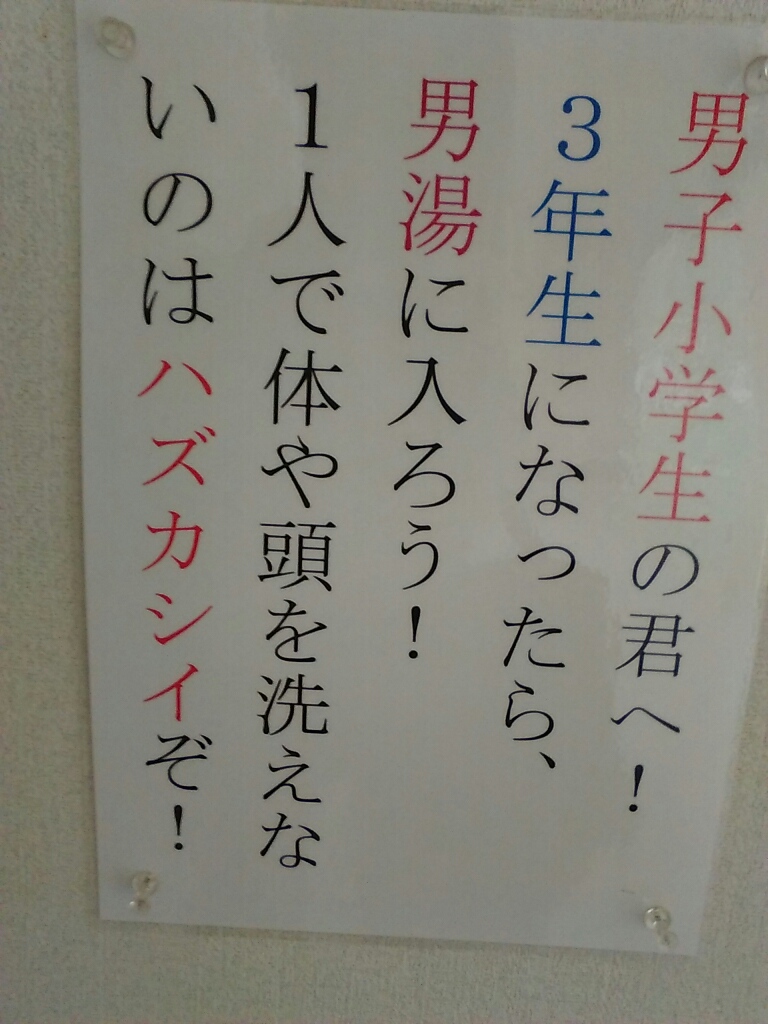 男子小学生の君へ！
３年生になったら、
男湯に入ろう！
１人で体や頭を洗えな
いのはハズカシイぞ！